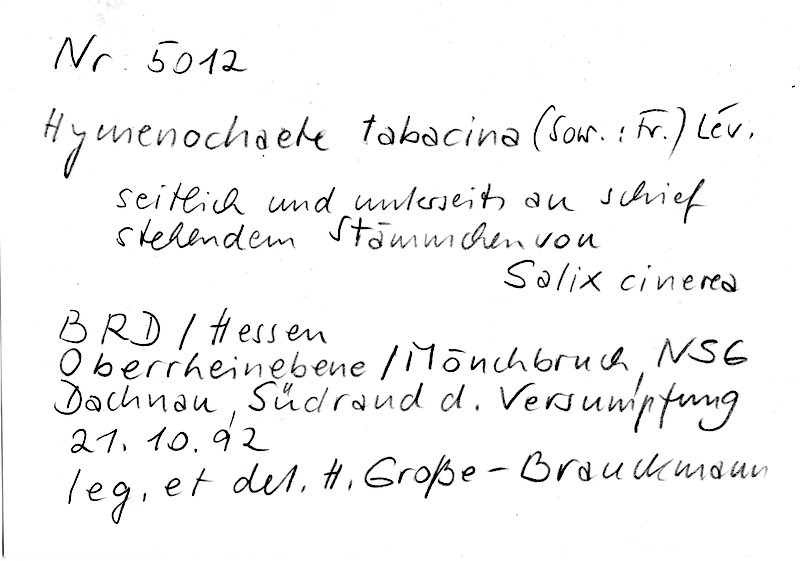 Nr. 5012
Hymenochaete tabacina (Sow. : Fr.) Lév.
seitlich und unterseits an schief
stehendem Stämmchen von
Salix cinerea
BRD / Hessen
Oberrheinebene / Mönchbruch, NSG
Dachnau, Südrand d. Versumpfung
21. 10. 92
leg. et det. H. Große-Brauckmann